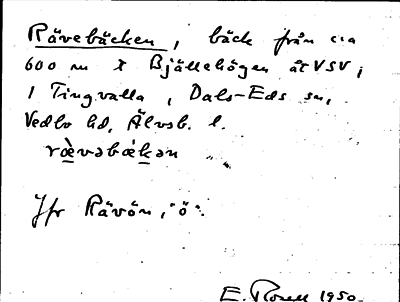 Rävebäcken, bäck från c:a
600 m N Bjällehögen åt VSV i
1 Tingvalla, Dals-Eds sn,
Vedbo hd, Älvsb. l.
Jfr Rävön, "ö".
E. Rosell 1950.